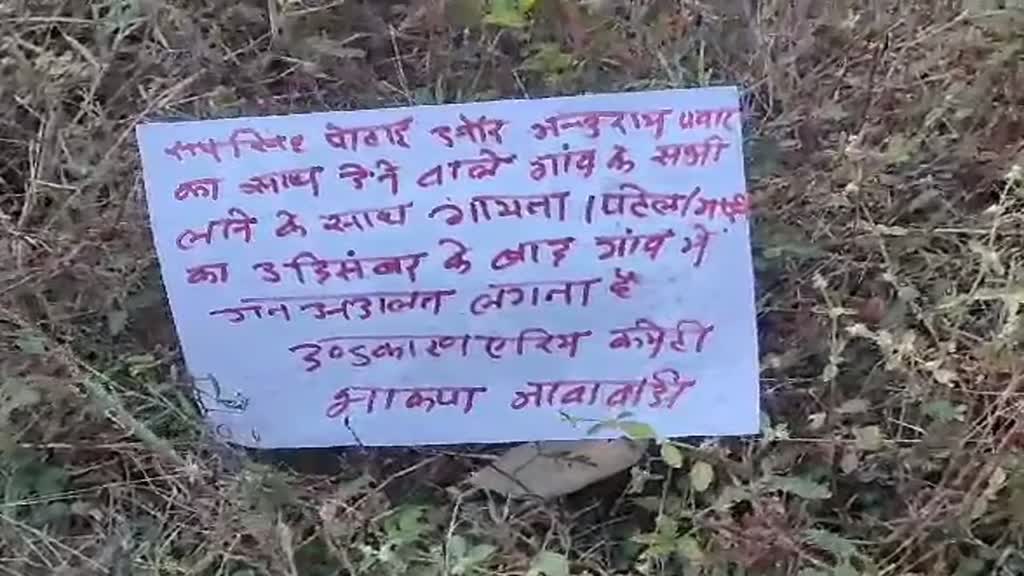 रूपसिंह पोटाई और मन्कुराम पवार
का साथ देने वाले गांव के सभी
लाने के साथ गायता / पटेल /
का 3 दिसंबर के बाद गांव में
जन अदालत लगना है
दण्डकारण एरिया कमेटी
भाकपा माओवादी